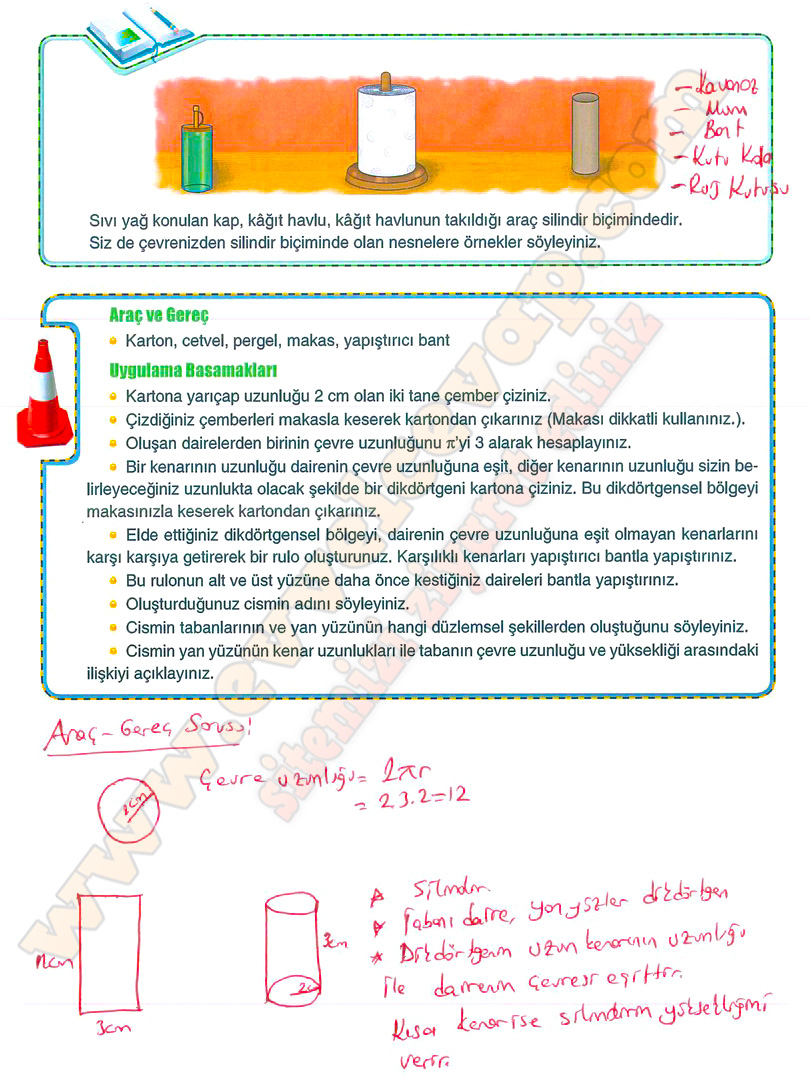 - Kavanoz
- Mum
- Bant
- Kutu Kola
- Ruj Kutusu
Sıvı yağ konulan kap, kâğıt havlu, kâğıt havlunun takıldığı araç silindir biçimindedir.
Siz de çevrenizden silindir biçiminde olan nesnelere örnekler söyleyiniz.
Araç ve Gereç
• Karton, cetvel, pergel, makas, yapıştırıcı bant
Uygulama Basamakları
• Kartona yarıçap uzunluğu 2 cm olan iki tane çember çiziniz.
• Çizdiğiniz çemberleri makasla keserek kartondan çıkarınız (Makası dikkatli kullanınız.).
• Oluşan dairelerden birinin çevre uzunluğunu π'yi 3 alarak hesaplayınız.
• Bir kenarının uzunluğu dairenin çevre uzunluğuna eşit, diğer kenarının uzunluğu sizin be-
lirleyeceğiniz uzunlukta olacak şekilde bir dikdörtgeni kartona çiziniz. Bu dikdörtgensel bölgeyi
makasınızla keserek kartondan çıkarınız.
• Elde ettiğiniz dikdörtgensel bölgeyi, dairenin çevre uzunluğuna eşit olmayan kenarlarını
karşı karşıya getirerek bir rulo oluşturunuz. Karşılıklı kenarları yapıştırıcı bantla yapıştırınız.
• Bu rulonun alt ve üst yüzüne daha önce kestiğiniz daireleri bantla yapıştırınız.
• Oluşturduğunuz cismin adını söyleyiniz.
• Cismin tabanlarının ve yan yüzünün hangi düzlemsel şekillerden oluştuğunu söyleyiniz.
• Cismin yan yüzünün kenar uzunlukları ile tabanın çevre uzunluğu ve yüksekliği arasındaki
ilişkiyi açıklayınız.
www.evvelcevap.com
sitemizi ziyaret ediniz
Araç - Gereç Sorusu!
Çevre uzunluğu = 2πr
= 2.3.2=12
2cm
12cm
3cm
3cm
2cm
* Silindir.
* Tabanı daire, yan yüzler dikdörtgen
* Dikdörtgenin uzun kenarının uzunluğu
ile dairenin çevresi eşittir.
Kısa kenar ise silindirin yüksekliğini
verir.